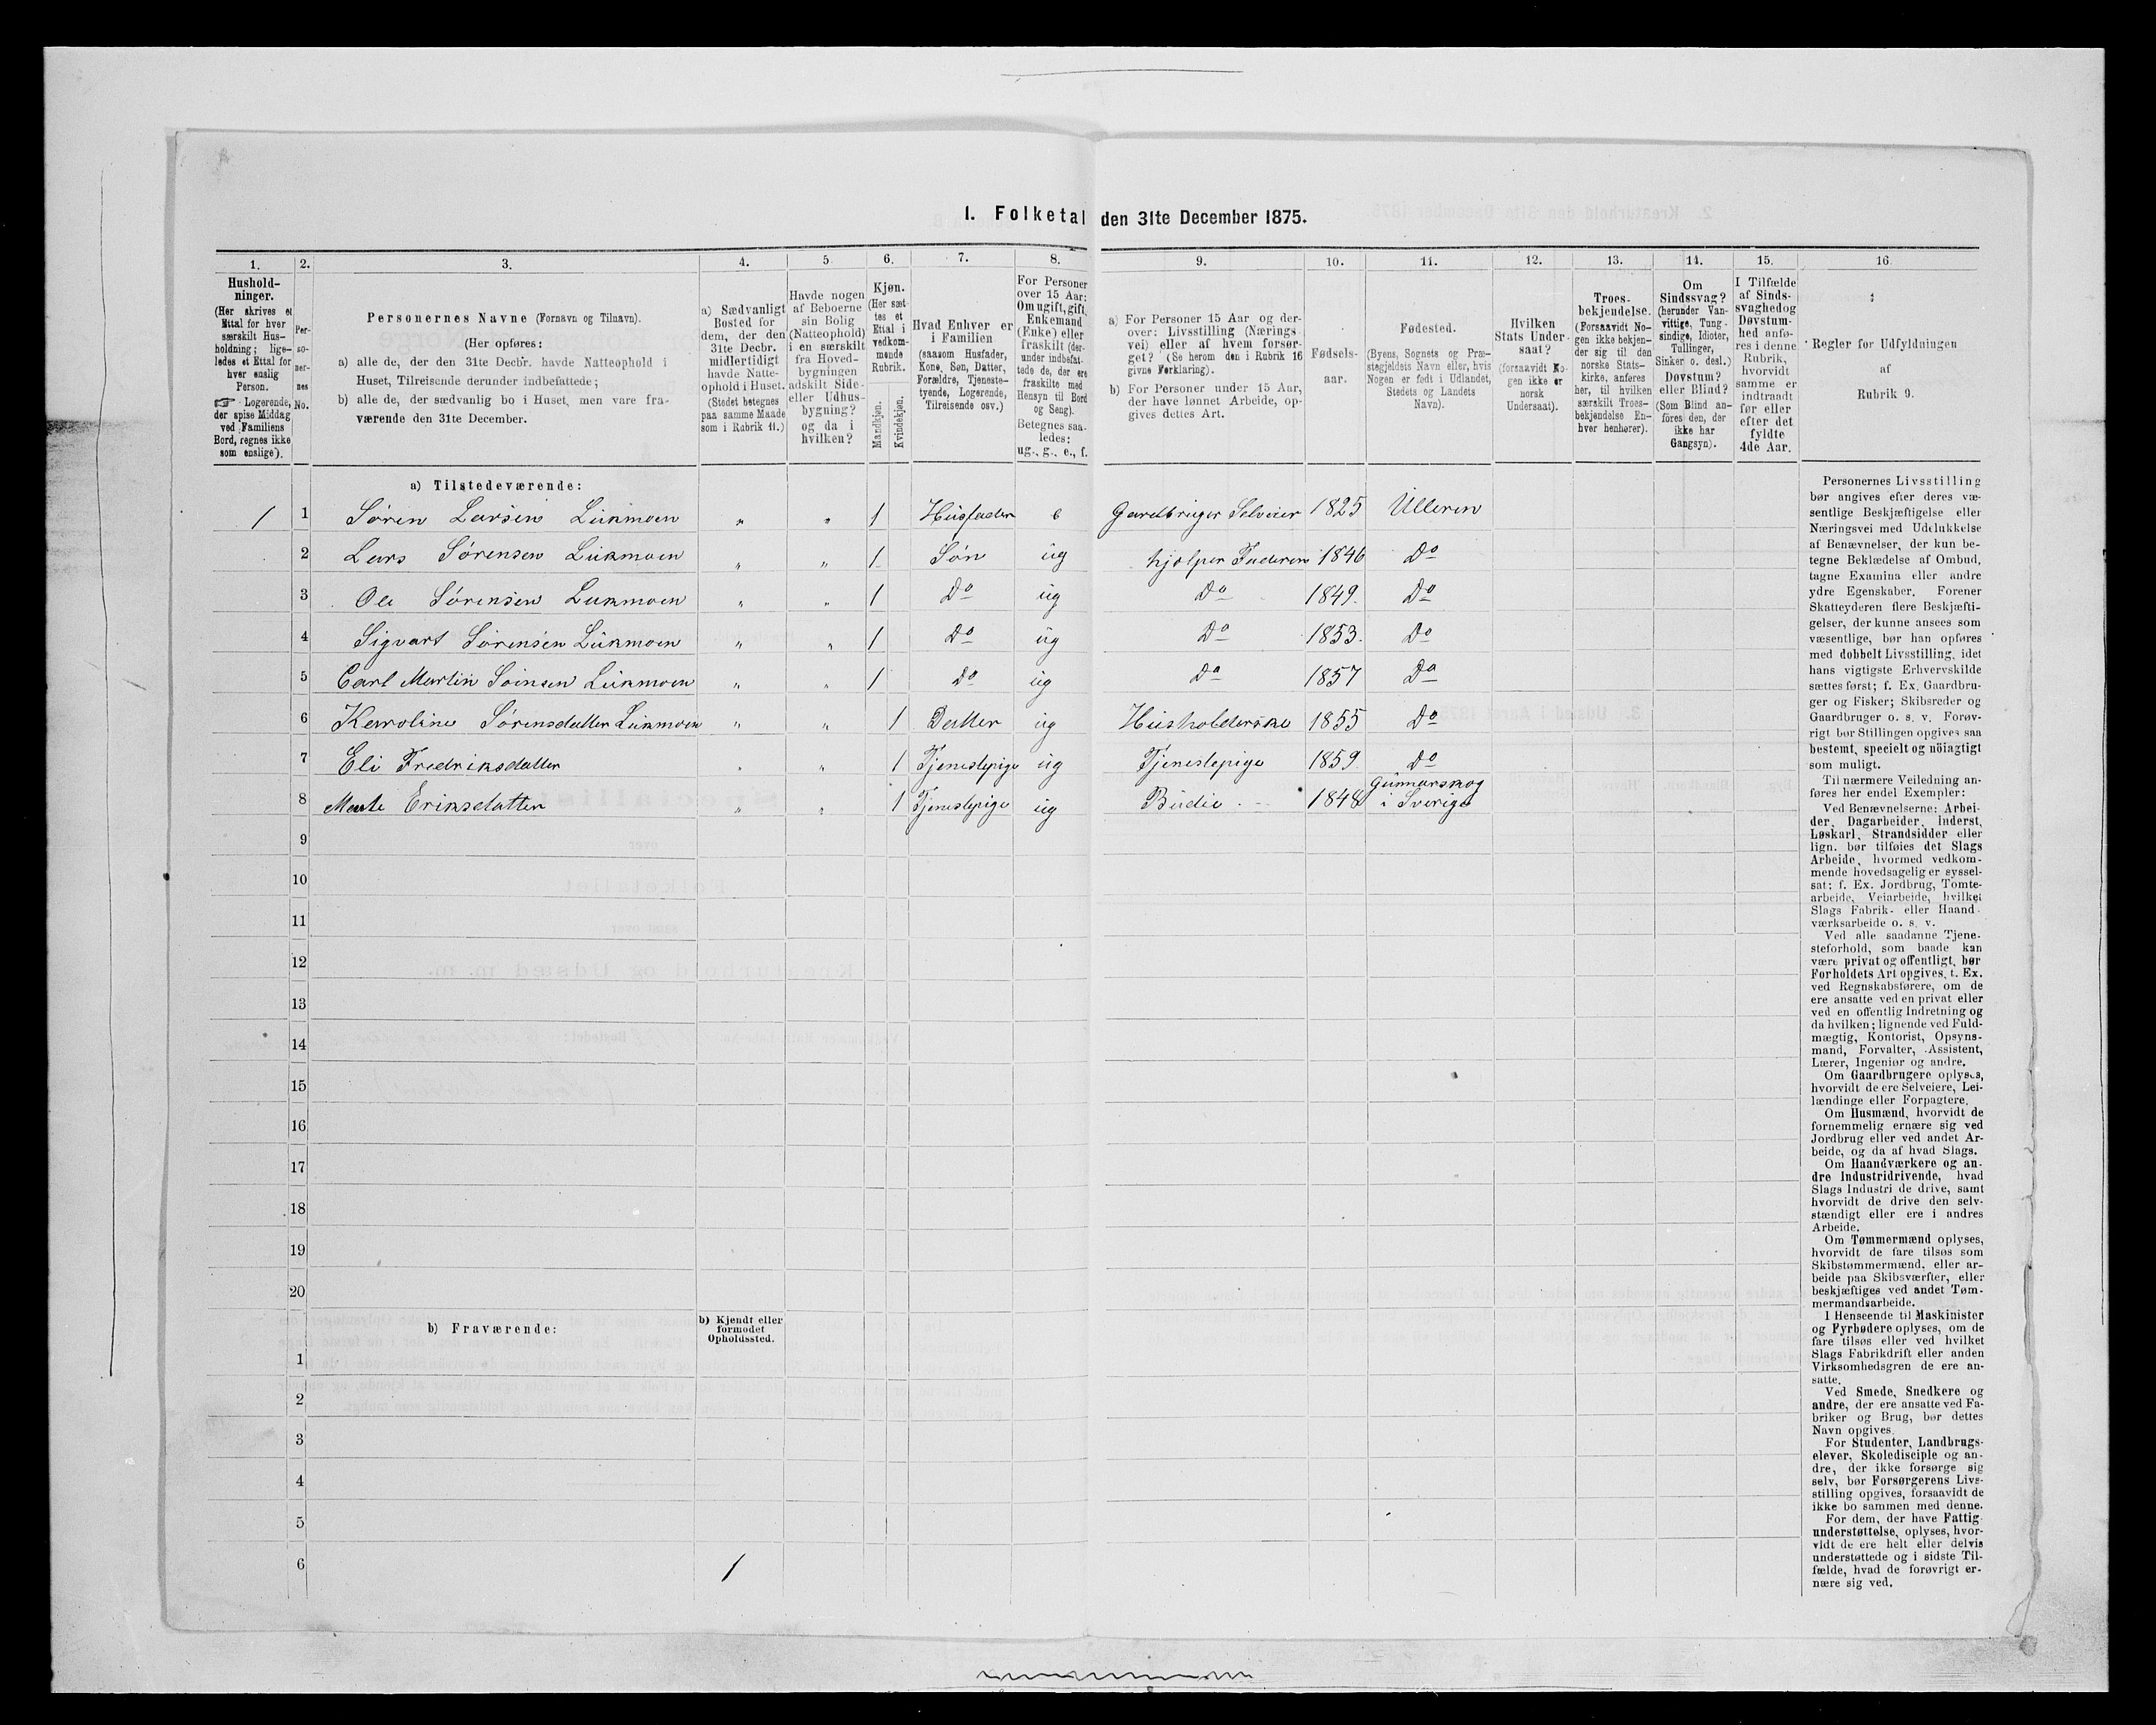 1. Folketal den 31te December 1875.
1. 2. 3. 4. 5 6. 7. 8. 9. 10. 11. 12. 13. 14. 15. 16.
Hushold-
ninger.
(Her skrives et
Ettal for hver
særskilt Hus-
holdning; lige-
ledes et Ettal for
hver enslig
Person.
☞ Logerende,
der spise Middag
ved Familiens
Bord, regnes ikke
som enslige).
Per-
so-
ner-
nes
No.
Personernes Navne (Fornavn og Tilnavn).
(Her opføres:
a) alle de, der den 31te Decbr. havde Natteophold i
Huset, Tilreisende derunder indbefattede;
b) alle de, der sædvanlig bo i Huset, men vare fra-
værende den 31te December.
a) Sædvanligt
Bosted for
dem, der den
31te Decbr.
midlertidigt
havde Natte-
ophold i Huset.
(Stedet betegnes
paa samme Maade
som i Rubrik 11.)
Havde nogen
af Beboerne
sin Bolig
(Natteophold)
i en særskilt
fra Hoved-
bygningen
adskilt Side-
eller Udhus-
bygning?
og da i
hvilken?
Kjøn.
(Her sæt-
tes et
Ettal i
vedkom-
mende
Rubrik.
Mandkjøn.
Kvindekjøn.
Hvad Enhver er
i Familien
(saasom Husfader,
Kone, Søn, Datter,
Forældre, Tjeneste-
tyende, Logerende,
Tilreisende osv.)
For Personer
over 15 Aar:
Om ugift, gift,
Enkemand
(Enke) eller
fraskilt (der-
under indbefat-
tede de, der ere
fraskilte med
Hensyn til Bord
og Seng).
Betegnes saa-
ledes:
ug., g., e., f.
a) For Personer 15 Aar og der-
over: Livsstilling (Nærings
vei) eller af hvem forsør-
get? (Se herom den i Rubrik 16
givne Forklaring).
b) For Personer under 15 Aar,
der have lønnet Arbeide, op-
gives dettes Art.
Fødsels-
aar.
Fødested.
(Byens, Sognets og Præ-
stegjeldets Navn eller, hvis
Nogen er født i Udlandet,
Stedets og Landets
Navn).
Hvilken
Stats Under
saat?
(forsaavidt No-
gen ikke er
norsk
Undersaat).
Troes-
bekjendelse.
(Forsaavidt No-
gen ikke bekjen-
der sig til den
norske Stats-
kirke, anføres
her, til hvilken
særskilt Troes-
bekjendelse En-
hver henhører).
Om
Sindssvag?
(herunder Van-
vittige, Tung-
sindige, Idioter,
Tullinger,
Sinker o. desl.)
Døvstum?
eller Blind?
(Som Blind an-
föres den, der
ikke har
Gangsyn).
I Tilfælde
af Sinds-
svaghed og
Døvstum-
hed anfø-
res i denne
Rubrik,
hvorvidt
samme er
indtraadt
før eller
efter det
fyldte
4de Aar.
Regler for Udfyldningen
af
Rubrik 9.
a) Tilstedeværende:
1 1 Søren Larsen Lükmoen " " 1 Hüsfader e Gardbruger Selveier 1825 Ulleren
2 Lars Sørensen Lükmoen " " 1 Søn ug hjælper Faderen 1846 Do
3 Ole Sørensen Lukmoen " " 1 Do ug Do 1849. Do
4 Sigvart Sørensen Lükmoen " " 1 Do ug Do 1853. Do
5 Carl Martin Sørnsen Lükmoen " " 1 Do ug Do 1857 Do
6 Karoline Sørensdatter Lükmoen " " 1 Datter ug Hüsholderske 1855 Do
7 Eli Fredriksdatter " " 1 Tjenestepige ug Tjenestepige 1859 Do
8 Marte Eriksdatter " " 1 Tjenestepige ug Budeie 1848 Günnarskog
i Sverige
9
10
11
12
13
14
15
16
17
18
19
20
b) Fraværende:
b) Kjendt eller
formodet
Opholdssted.
1
2
3
4
5
6
1
Personernes Livsstilling
bør angives efter deres væ-
sentlige Beskjæftigelse eller
Næringsvei med Udelukkelse
af Benævnelser, der kun be-
tegne Beklædelse af Ombud,
tagne Examina eller andre
ydre Egenskaber. Forener
Skatteyderen flere Beskjæfti-
gelser, der kunne ansees som
væsentlige, bør han opføres
med dobbelt Livsstilling, idet
hans vigtigste Erhvervskilde
sættes først; f. Ex. Gaardbru-
ger og Fisker; Skibsreder og
Gaardbruger o. s. v. Forøv-
rigt bør Stillingen opgives saa
bestemt, specielt og nöiagtigt
som muligt.
Til nærmere Veiledning an-
føres her endel Exempler:
Ved Benævnelserne: Arbei-
der, Dagarbeider, Inderst,
Løskarl, Strandsidder eller
lign. bør tilføies det Slags
Arbeide, hvormed vedkom-
mende hovedsagelig er syssel-
sat; f. Ex. Jordbrug, Tomte-
arbeide, Veiarbeide, hvilket
Slags Fabrik- eller Haand-
værksarbeide o. s. v.
Ved alle saadanne Tjene-
steforhold, som baade kan
være privat og offentligt, bør
Forholdets Art opgives, t. Ex.
ved Regnskabsførere, om de
ere ansatte ved en privat eller
ved en offentlig Indretning og
da hvilken; lignende ved Fuld-
mægtig, Kontorist, Opsyns-
mand, Forvalter, Assistent,
Lærer, Ingeniør og andre.
Om Gaardbrugere oplyses,
hvorvidt de ere Selveiere, Lei-
lændinge eller Forpagtere.
Om Husmænd, hvorvidt de
fornemmelig ernære sig ved
Jordbrug eller ved andet Ar-
beide, og da af hvad Slags.
Om Haandværkere og an-
dre Industridrivende, hvad
Slags Industri de drive, samt
hvorvidt de drive den selv-
stændigt eller ere i andres
Arbeide.
Om Tømmermænd oplyses,
hvorvidt de fare tilsøs som
Skibstømmermænd, eller ar-
beide paa Skibsværfter, eller
beskjæftiges ved andet Tøm-
mermandsarbeide.
I Henseende til Maskinister
og Fyrbødere oplyses, om de
fare tilsøs eller ved hvilket
Slags Fabrikdrift eller anden
Virksomhedsgren de ere an-
satte.
Ved Smede, Snedkere og
andre, der ere ansatte ved Fa-
briker og Brug, bør dettes
Navn opgives.
For Studenter, Landbrugs-
elever, Skoledisciple og an-
dre, der ikke forsørge sig
selv, bør Forsørgerens Livs-
stilling opgives, forsaavidt de
ikke bo sammen med denne.
For dem, der have Fattig
understøttelse, oplyses, hvor-
vidt de ere helt eller delvis
understøttede og i sidste Til-
fælde, hvad de forøvrigt er-
nære sig ved.